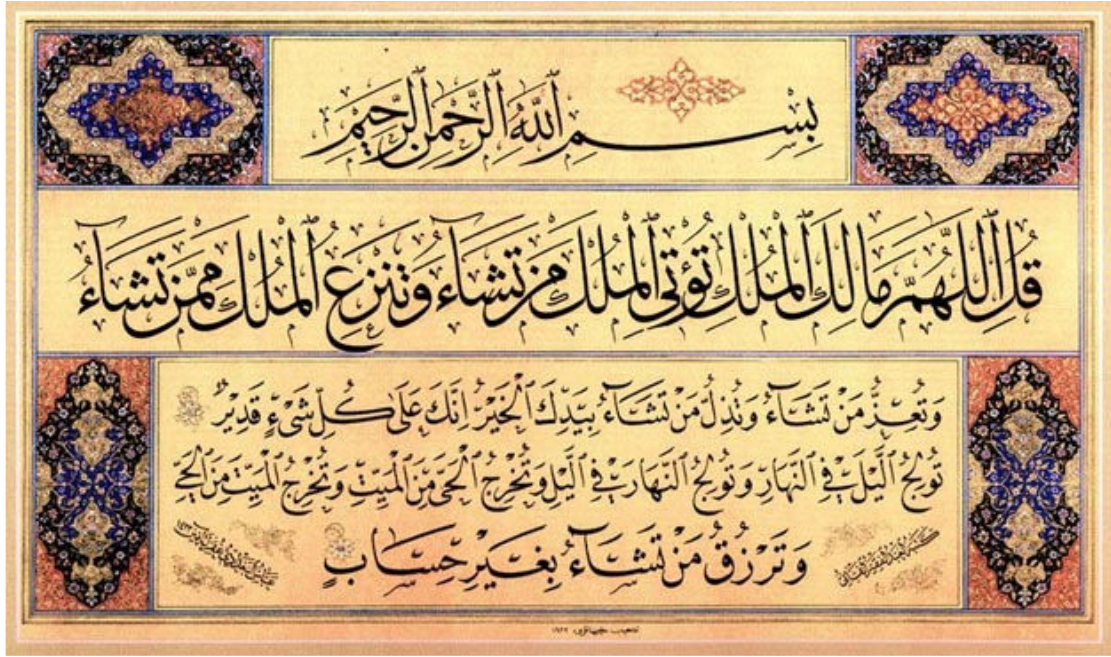 بِسْمِ ٱللَّهِ ٱلرَّحْمٰنِ ٱلرَّحِيمِ
قُلِ ٱللَّهُمَّ مَالِكَ ٱلْمُلْكِ تُؤْتِي ٱلْمُلْكَ مَنْ تَشَاءُ وَتَنْزِعُ ٱلْمُلْكَ مِمَّنْ تَشَاءُ
وَتُعِزُّ مَنْ تَشَاءُ وَتُذِلُّ مَنْ تَشَاءُ بِيَدِكَ ٱلْخَيْرُ اِنَّكَ عَلَىٰ كُلِّ شَيْءٍ قَدِيرٌ
تُولِجُ ٱلَّيْلَ فِي ٱلنَّهَارِ وَتُولِجُ ٱلنَّهَارَ فِي ٱلَّيْلِ وَتُخْرِجُ ٱلْحَيَّ مِنَ ٱلْمَيِّتِ وَتُخْرِجُ ٱلْمَيِّتَ مِنَ ٱلْحَيِّ
وَتَرْزُقُ مَنْ تَشَاءُ بِغَيْرِ حِسَابٍ